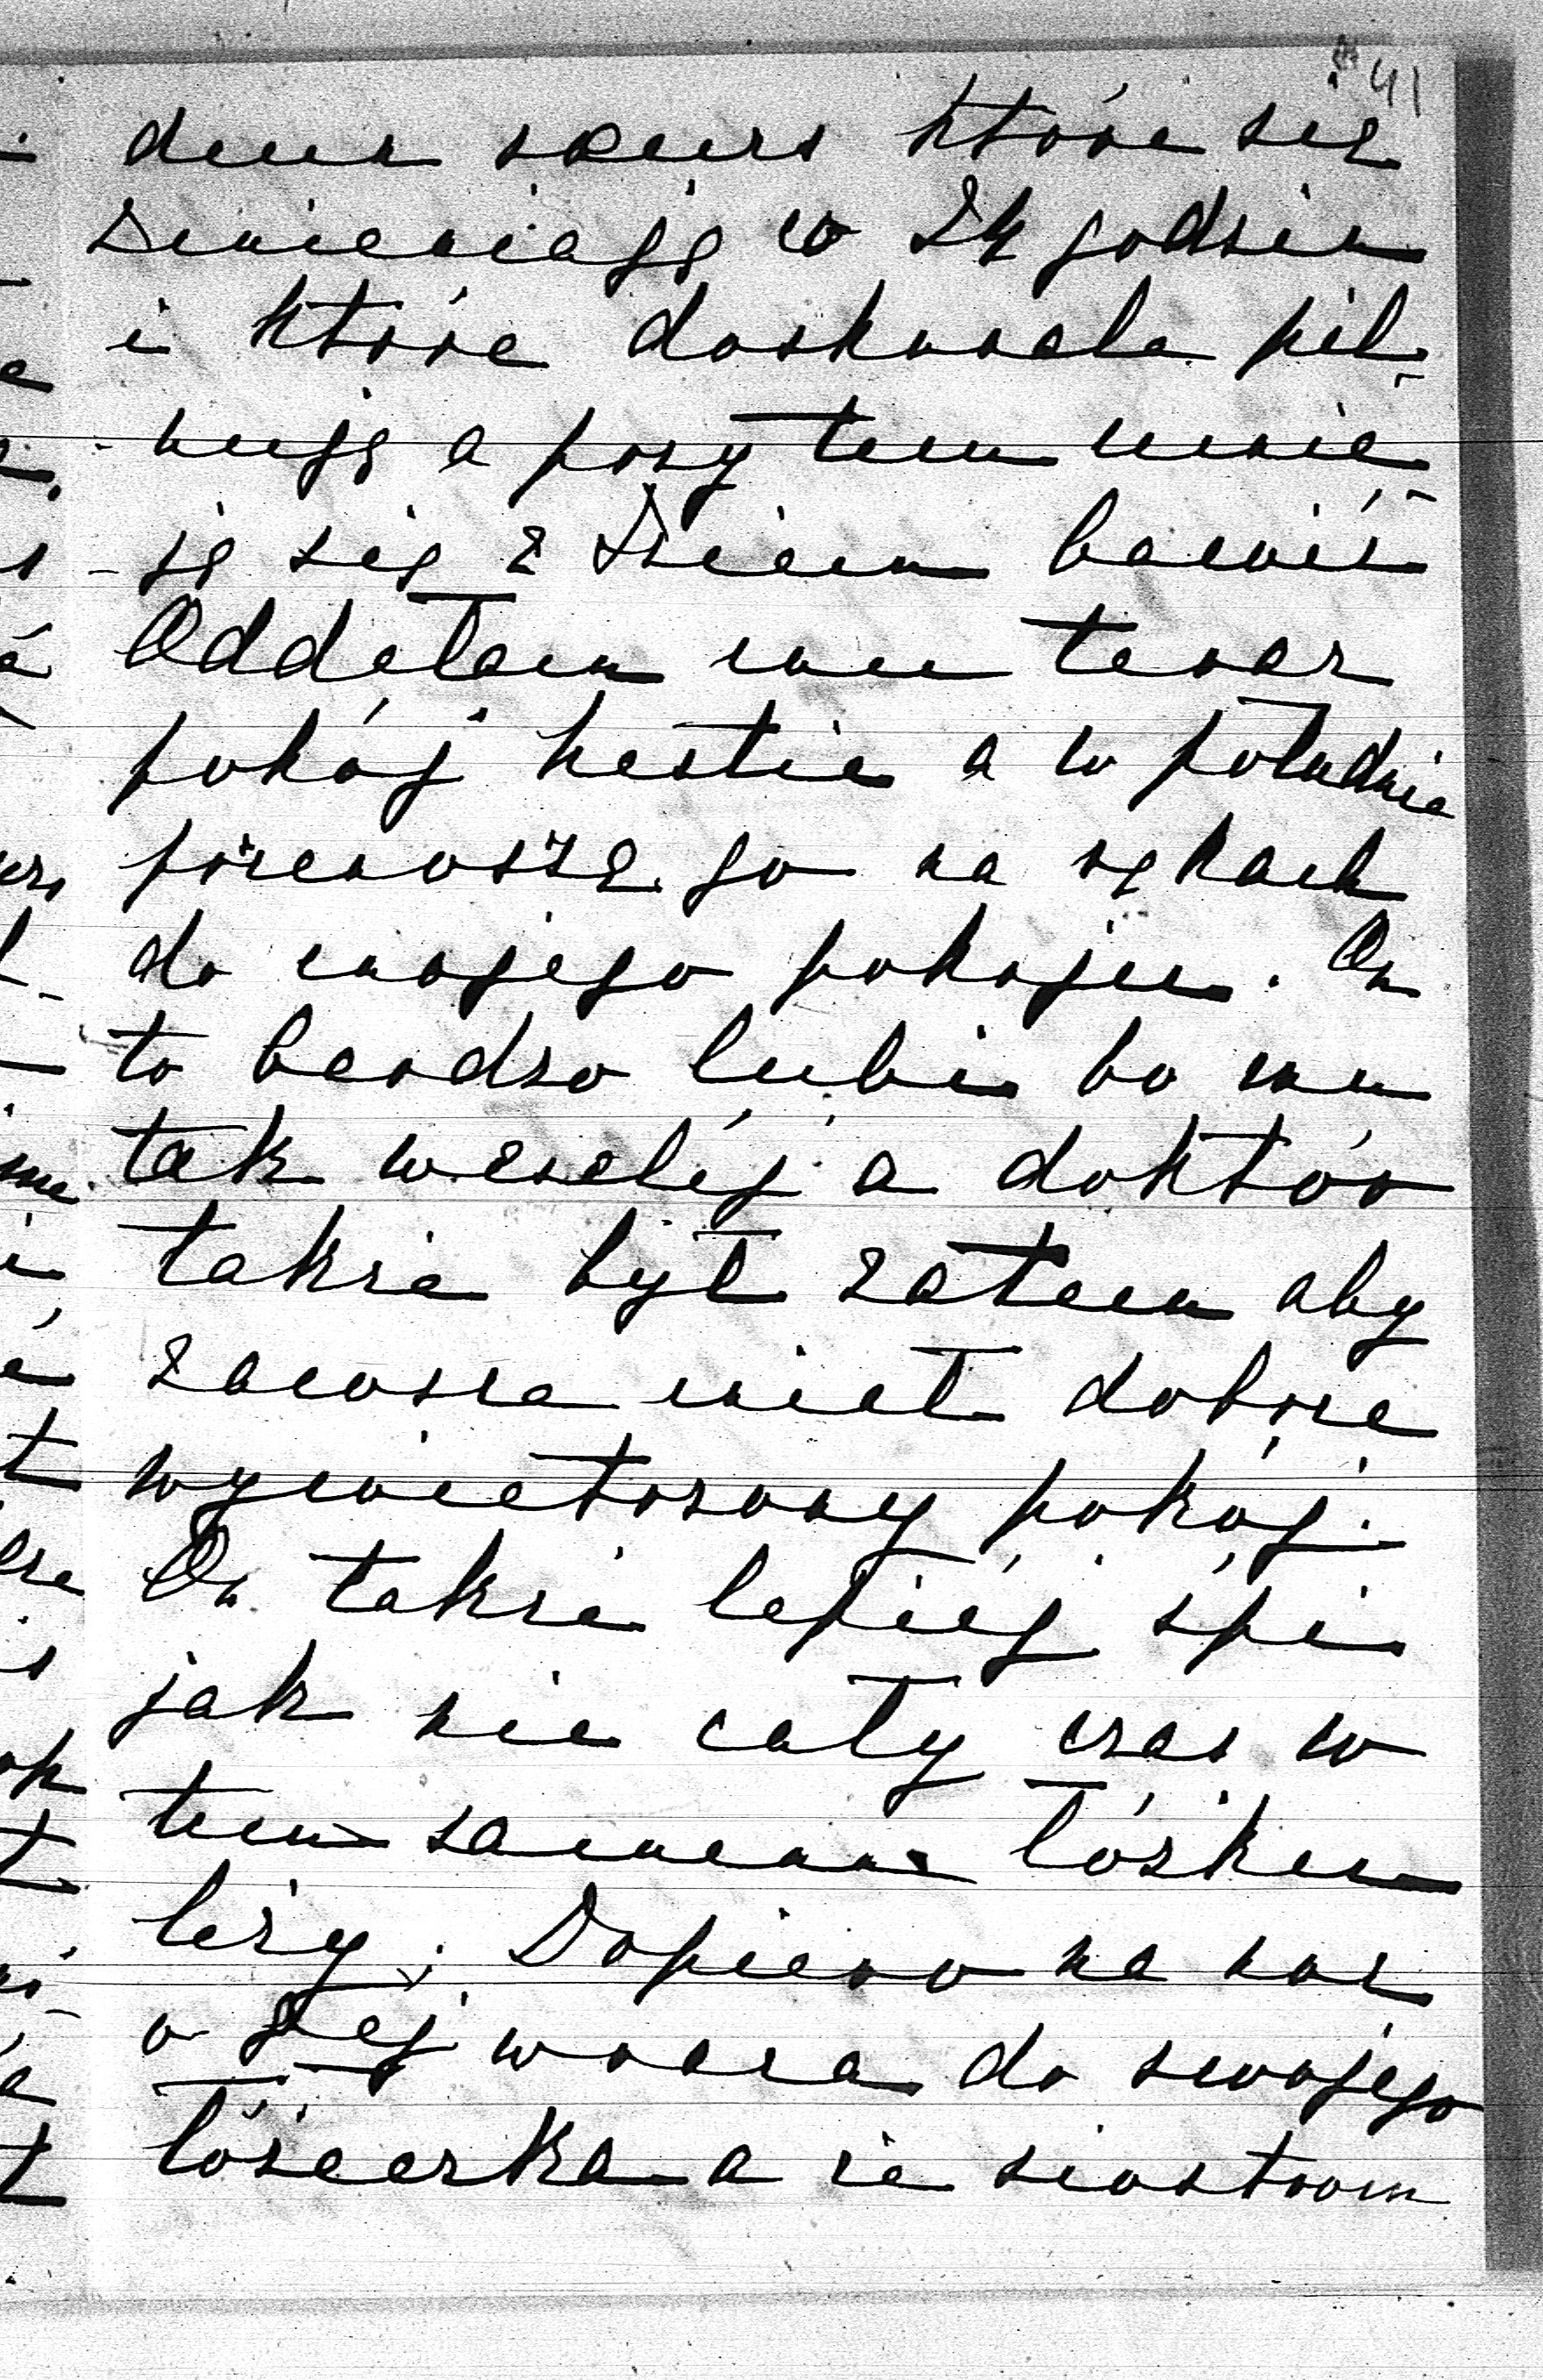 41
deux soeurs które się
zmieniają w 24 godzin
i które doskonale pil-
nują a przytem umie-
ją się z Dziem bawić
Oddałam mu teraz
pokój Kostia a w południe
przenoszę go na rękach
do mojego pokoju. On
to bardzo lubi bo mu
tak weselej a doktór
także był zatem aby
zawsze miał dobrze
wywietrzony pokój.
On także lepiej śpi
jak nie cały czas w
tem samem łóżku
leży. Dopiero na noc
o 8ej wraca do swojego
łóżeczka a że siostrom